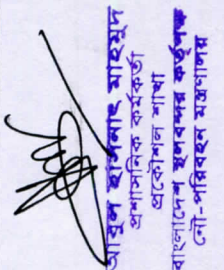 আবুল হাসনাৎ মাহমুদ
প্রশাসনিক কর্মকর্তা
প্রকৌশল শাখা
বাংলাদেশ স্থলবন্দর কর্তৃপক্ষ
নৌ-পরিবহন মন্ত্রণালয়